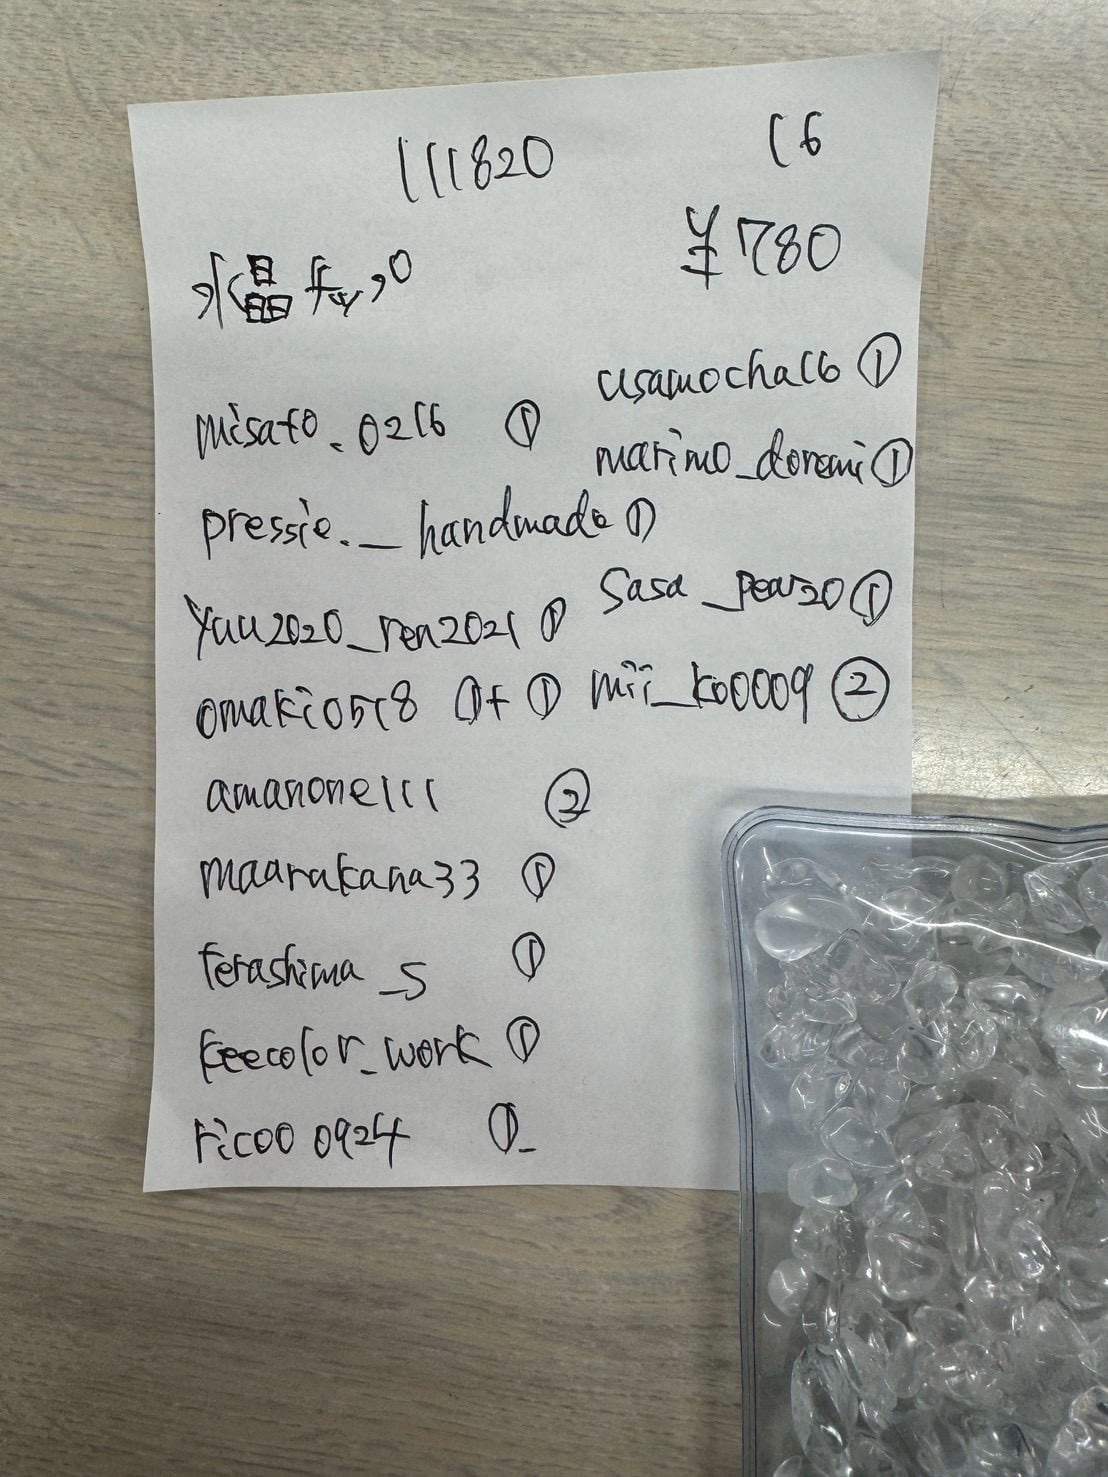 111820
16
¥780
水晶
misato.0216 ①
pressie._handmade ①
yuu2020_ren2021 ①
omaki0518 ①+①
amanone111 ②
maarakana33 ①
terashima_s ①
keecolor_work ①
ricoo0924 ①
usamocha16 ①
marimo_doremi ①
sasa_pear20 ①
mii_ko0009 ②